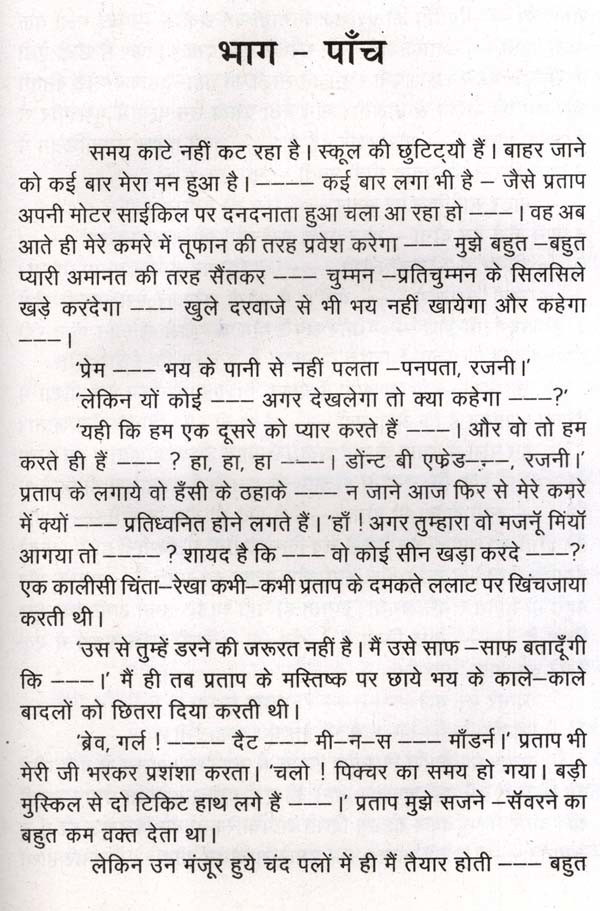 भाग – पाँच
समय काटे नहीं कट रहा है। स्कूल की छुटिट्यौ हैं। बाहर जाने
को कई बार मेरा मन हुआ है। –––– कई बार लगा भी है – जैसे प्रताप
अपनी मोटर साईकिल पर दनदनाता हुआ चला आ रहा हो ––––। वह अब
आते ही मेरे कमरे में तूफान की तरह प्रवेश करेगा –––– मुझे बहुत –बहुत
प्यारी अमानत की तरह सैंतकर –––– चुम्मन –प्रतिचुम्मन के सिलसिले
खड़े करदेगा –––– खुले दरवाजे से भी भय नहीं खायेगा और कहेगा
–––।
'प्रेम ––– भय के पानी से नहीं पलता –पनपता, रजनी।'
'लेकिन यों कोई –––– अगर देखलेगा तो क्या कहेगा –––?'
'यही कि हम एक दूसरे को प्यार करते हैं ––––। और वो तो हम
करते ही हैं –––– ? हा, हा, हा ––––। डोंन्ट बी एफ्रेड––––, रजनी।'
प्रताप के लगाये वो हँसी के ठहाके –––– न जाने आज फिर से मेरे कमरे
में क्यों –––– प्रतिध्वनित होने लगते हैं। 'हाँ ! अगर तुम्हारा वो मजनूँ मिंयाँ
आगया तो –––– ? शायद है कि –––– वो कोई सीन खड़ा करदे ––––?'
एक कालीसी चिंता–रेखा कभी–कभी प्रताप के दमकते ललाट पर खिंचजाया
करती थी।
'उस से तुम्हें डरने की जरूरत नहीं है। मैं उसे साफ –साफ बतादूँगी
कि ––––।' मैं ही तब प्रताप के मस्तिष्क पर छाये भय के काले–काले
बादलों को छितरा दिया करती थी।
'ब्रेव, गर्ल ! ––––– दैट –––– मी–न–स –––– माँडर्न।' प्रताप भी
मेरी जी भरकर प्रशंशा करता। 'चलो ! पिक्चर का समय हो गया। बड़ी
मुस्किल से दो टिकिट हाथ लगे हैं ––––।' प्रताप मुझे सजने –सँवरने का
बहुत कम वक्त देता था।
लेकिन उन मंजूर हुये चंद पलों में ही मैं तैयार होती –––– बहुत